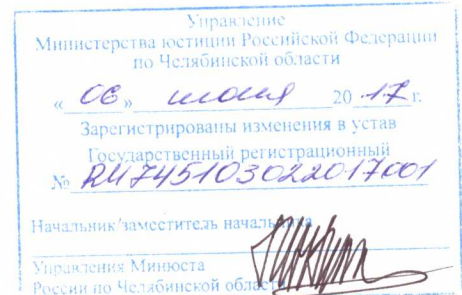 Управление
Министерства юстиции Российской Федерации
по Челябинской области
« 06 » июля 20 17 г.
Зарегистрированы изменения в устав
Государственный регистрационный
№ RU745103022017001
Начальник/заместитель начальника
Управления Минюста
России по Челябинской области